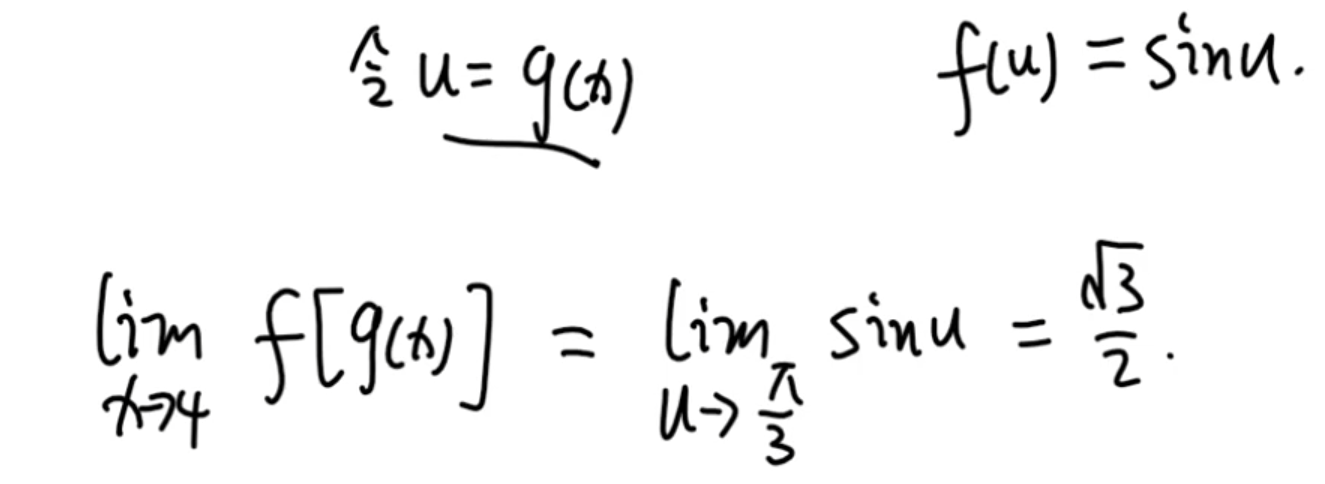 令 u = g(x) f(u) = sin u.
lim_{x→4} f[g(x)] = lim_{u→π/3} sin u = √3/2.